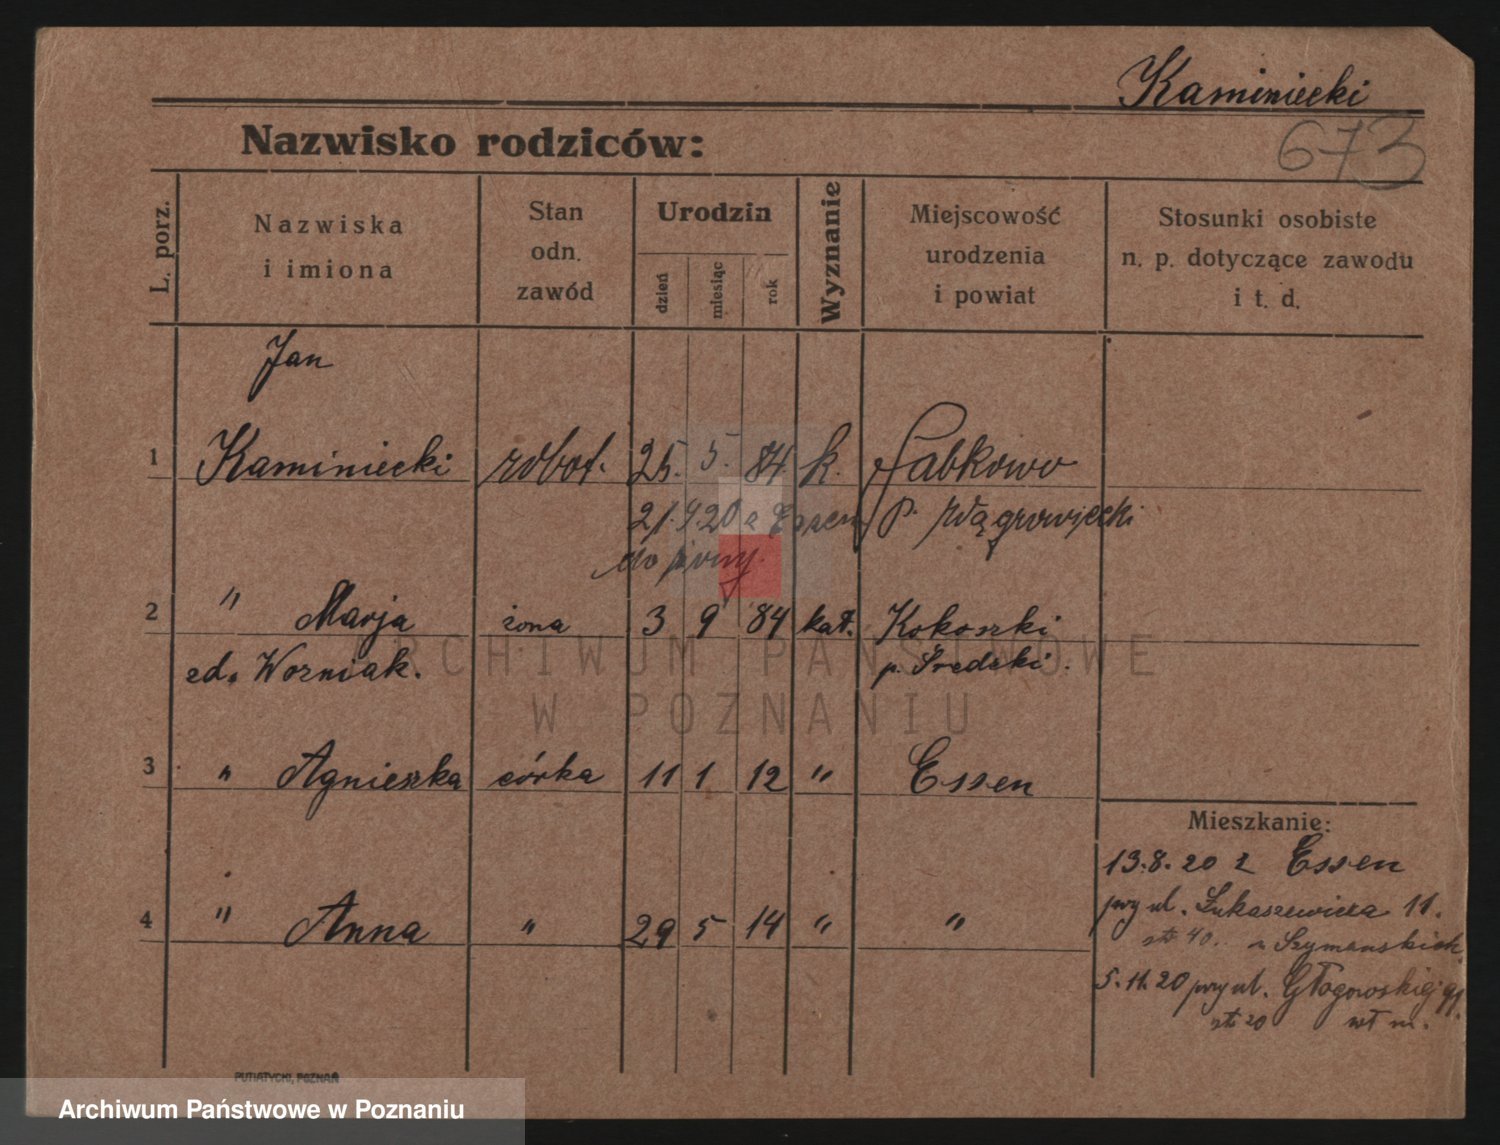 Kaminiecki
673
Nazwisko rodziców:
L. porz.
Nazwiska
i imiona
Stan
odn.
zawód
Urodzin
dzień
miesiąc
rok
Wyznanie
Miejscowość
urodzenia
i powiat
Stosunki osobiste
n. p. dotyczące zawodu
i t. d.
Jan
1 Kaminiecki robot. 25. 5. 84. k. Łabkowo
21.9.20 z Essen p. Wągrowiecki
do żony.
2 " Marja żona 3 9 84 kat. Kokoszki
zd. Wozniak. p. Średzki.
3 " Agnieszka córka 11 1 12 " Essen
4 " Anna " 29 5 14 " "
Mieszkanie:
13.8.20 z Essen
przy ul. Łukaszewicza 11.
40. u Szymanskich
5.11.20 przy ul. Głogowskiej 91.
20 m.
PUTIATYCKI, POZNAŃ
ARCHIWUM PAŃSTWOWE
W POZNANIU
Archiwum Państwowe w Poznaniu